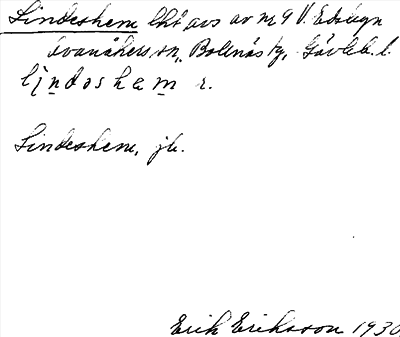 Lindeshem lht avs av m 9 V. Edsbyn
Svanåkers, sn, Bollnäs tg, Gävleb. l.
lindəshem r.
Lindeshem, jb.
Erik Eriksson 1930.